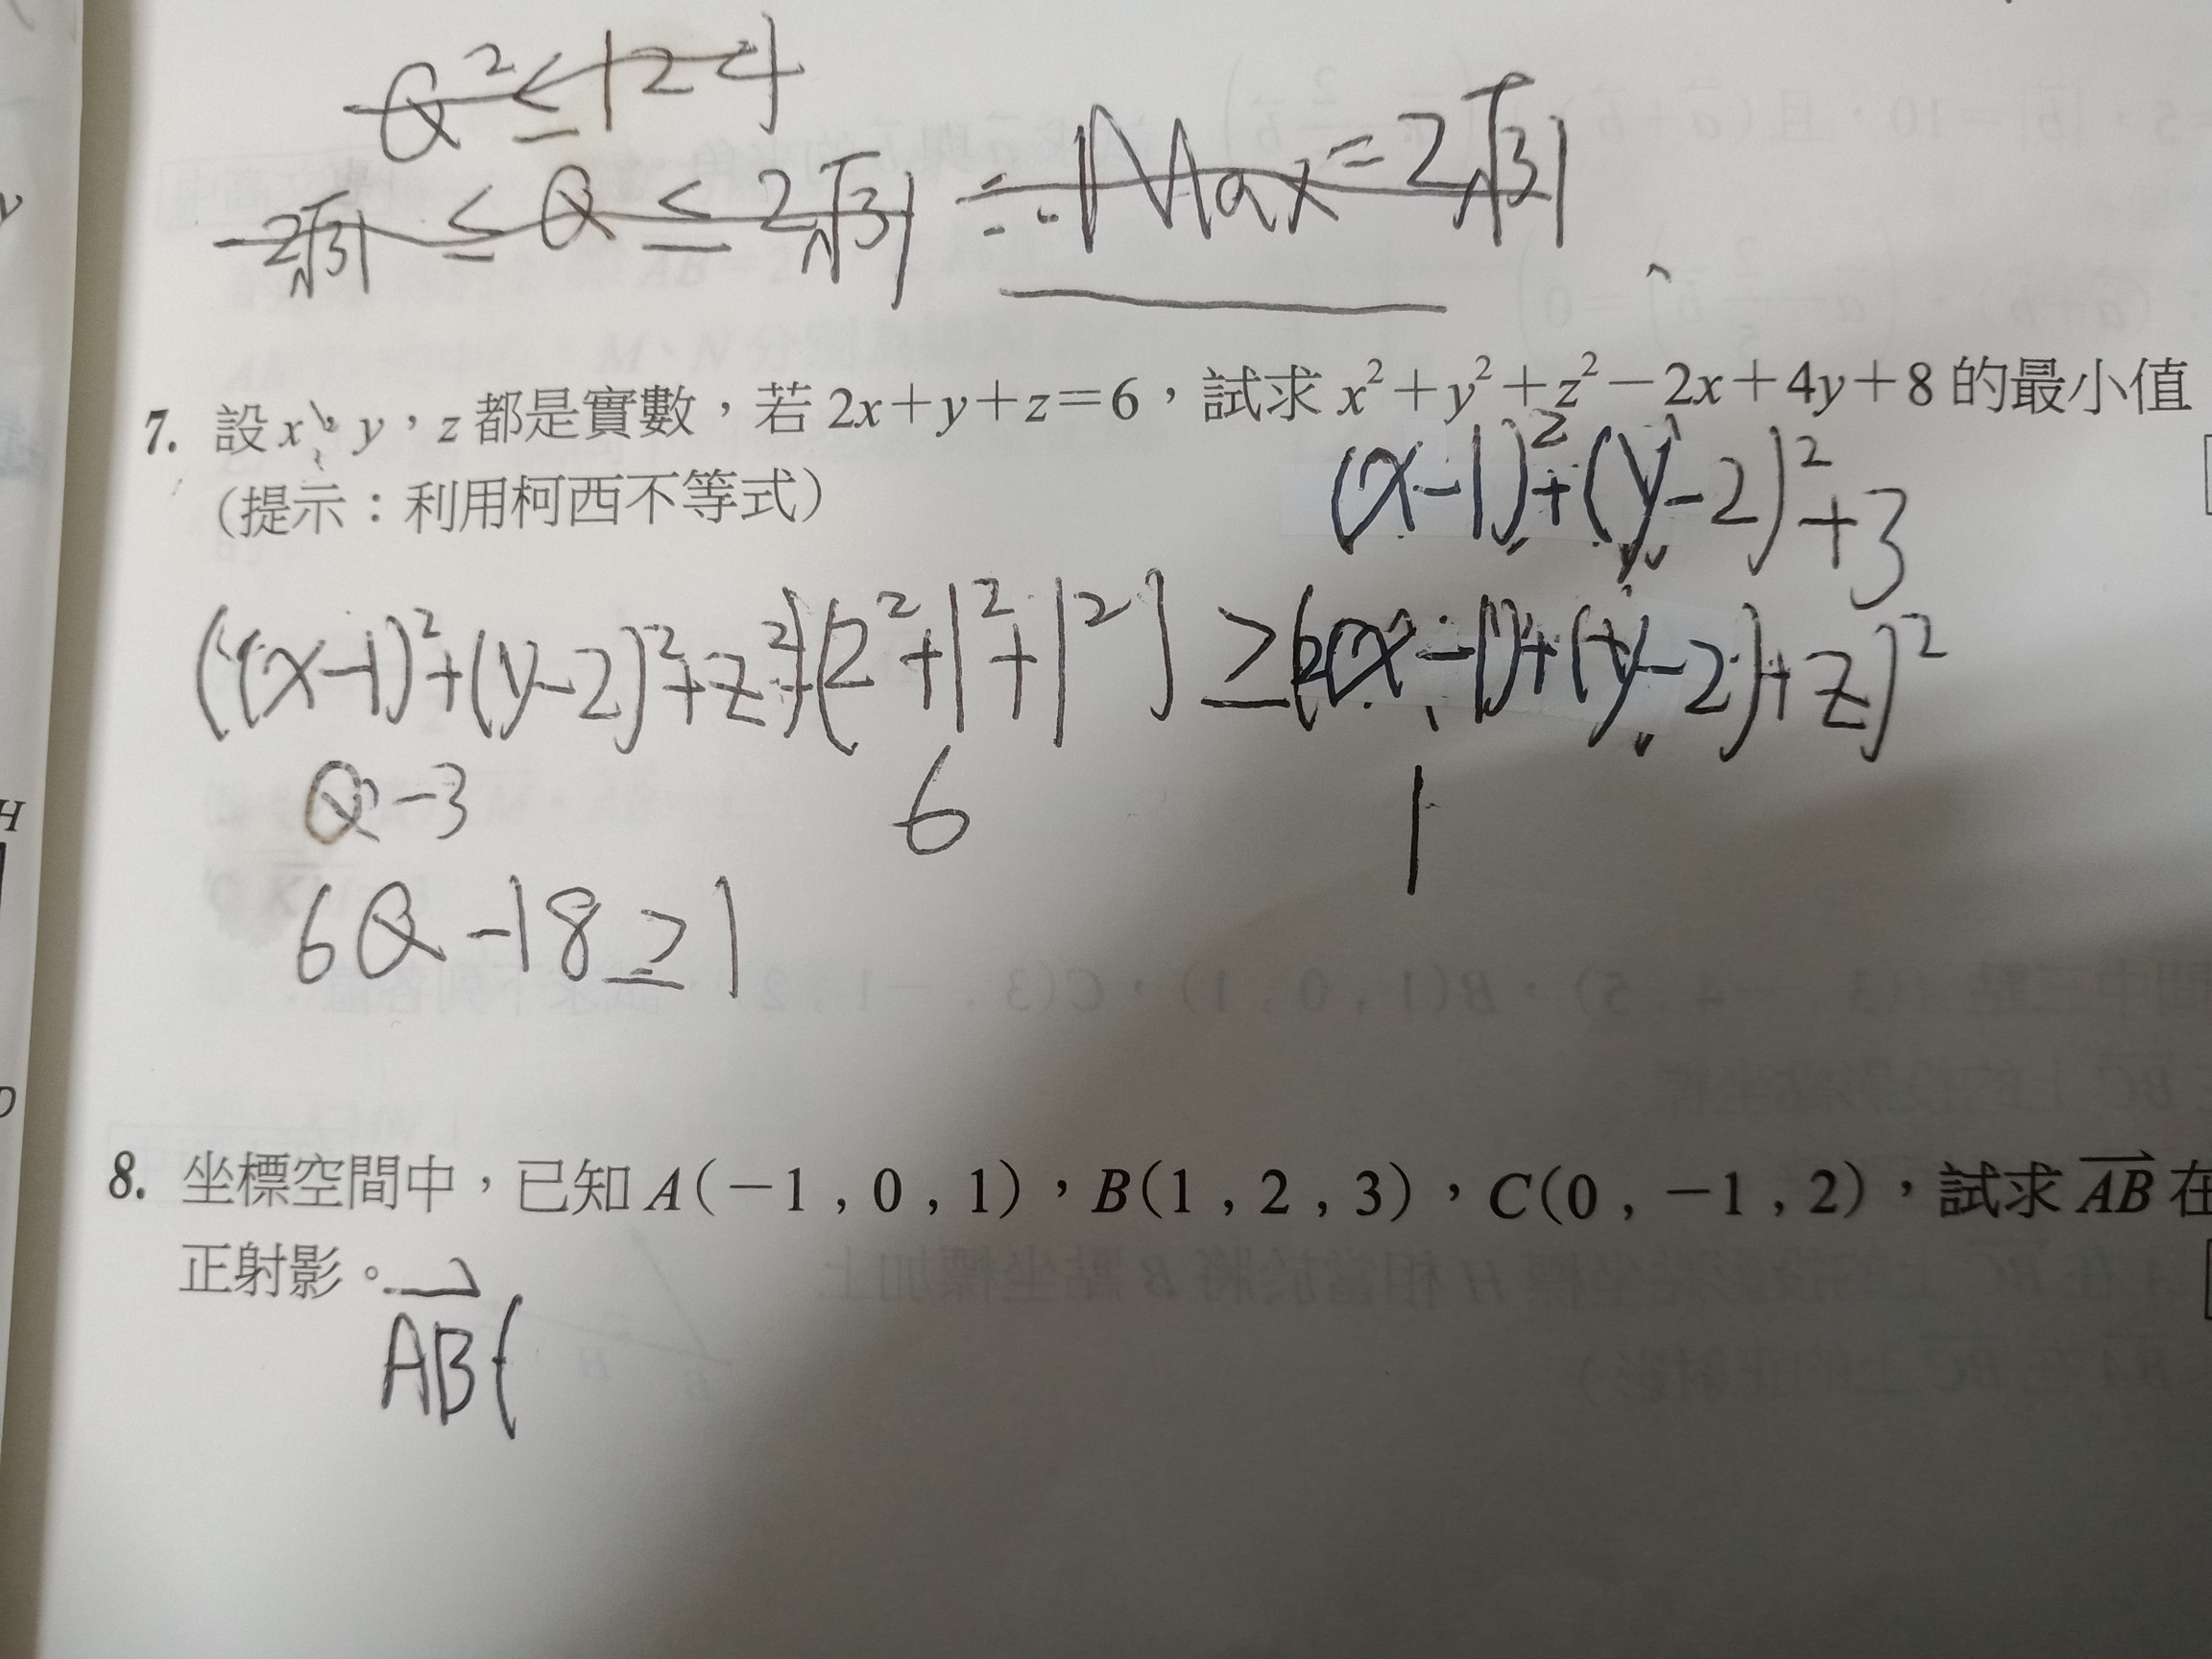 Q² ≤ 124
-2√31 ≤ Q ≤ 2√31 ∴ Max = 2√31
7. 設 x，y，z 都是實數，若 2x+y+z=6，試求 x²+y²+z²-2x+4y+8 的最小值
(x-1)²+(y-2)²+3
（提示：利用柯西不等式）
((x-1)²+(y-2)²+z²)(2²+1²+1²) ≥ (2(x-1)+(y-2)+z)²
Q-3 6 1
6Q-18 ≥ 1
8. 坐標空間中，已知 A(-1 , 0 , 1)，B(1 , 2 , 3)，C(0 , -1 , 2)，試求 AB 在
正射影。
AB(